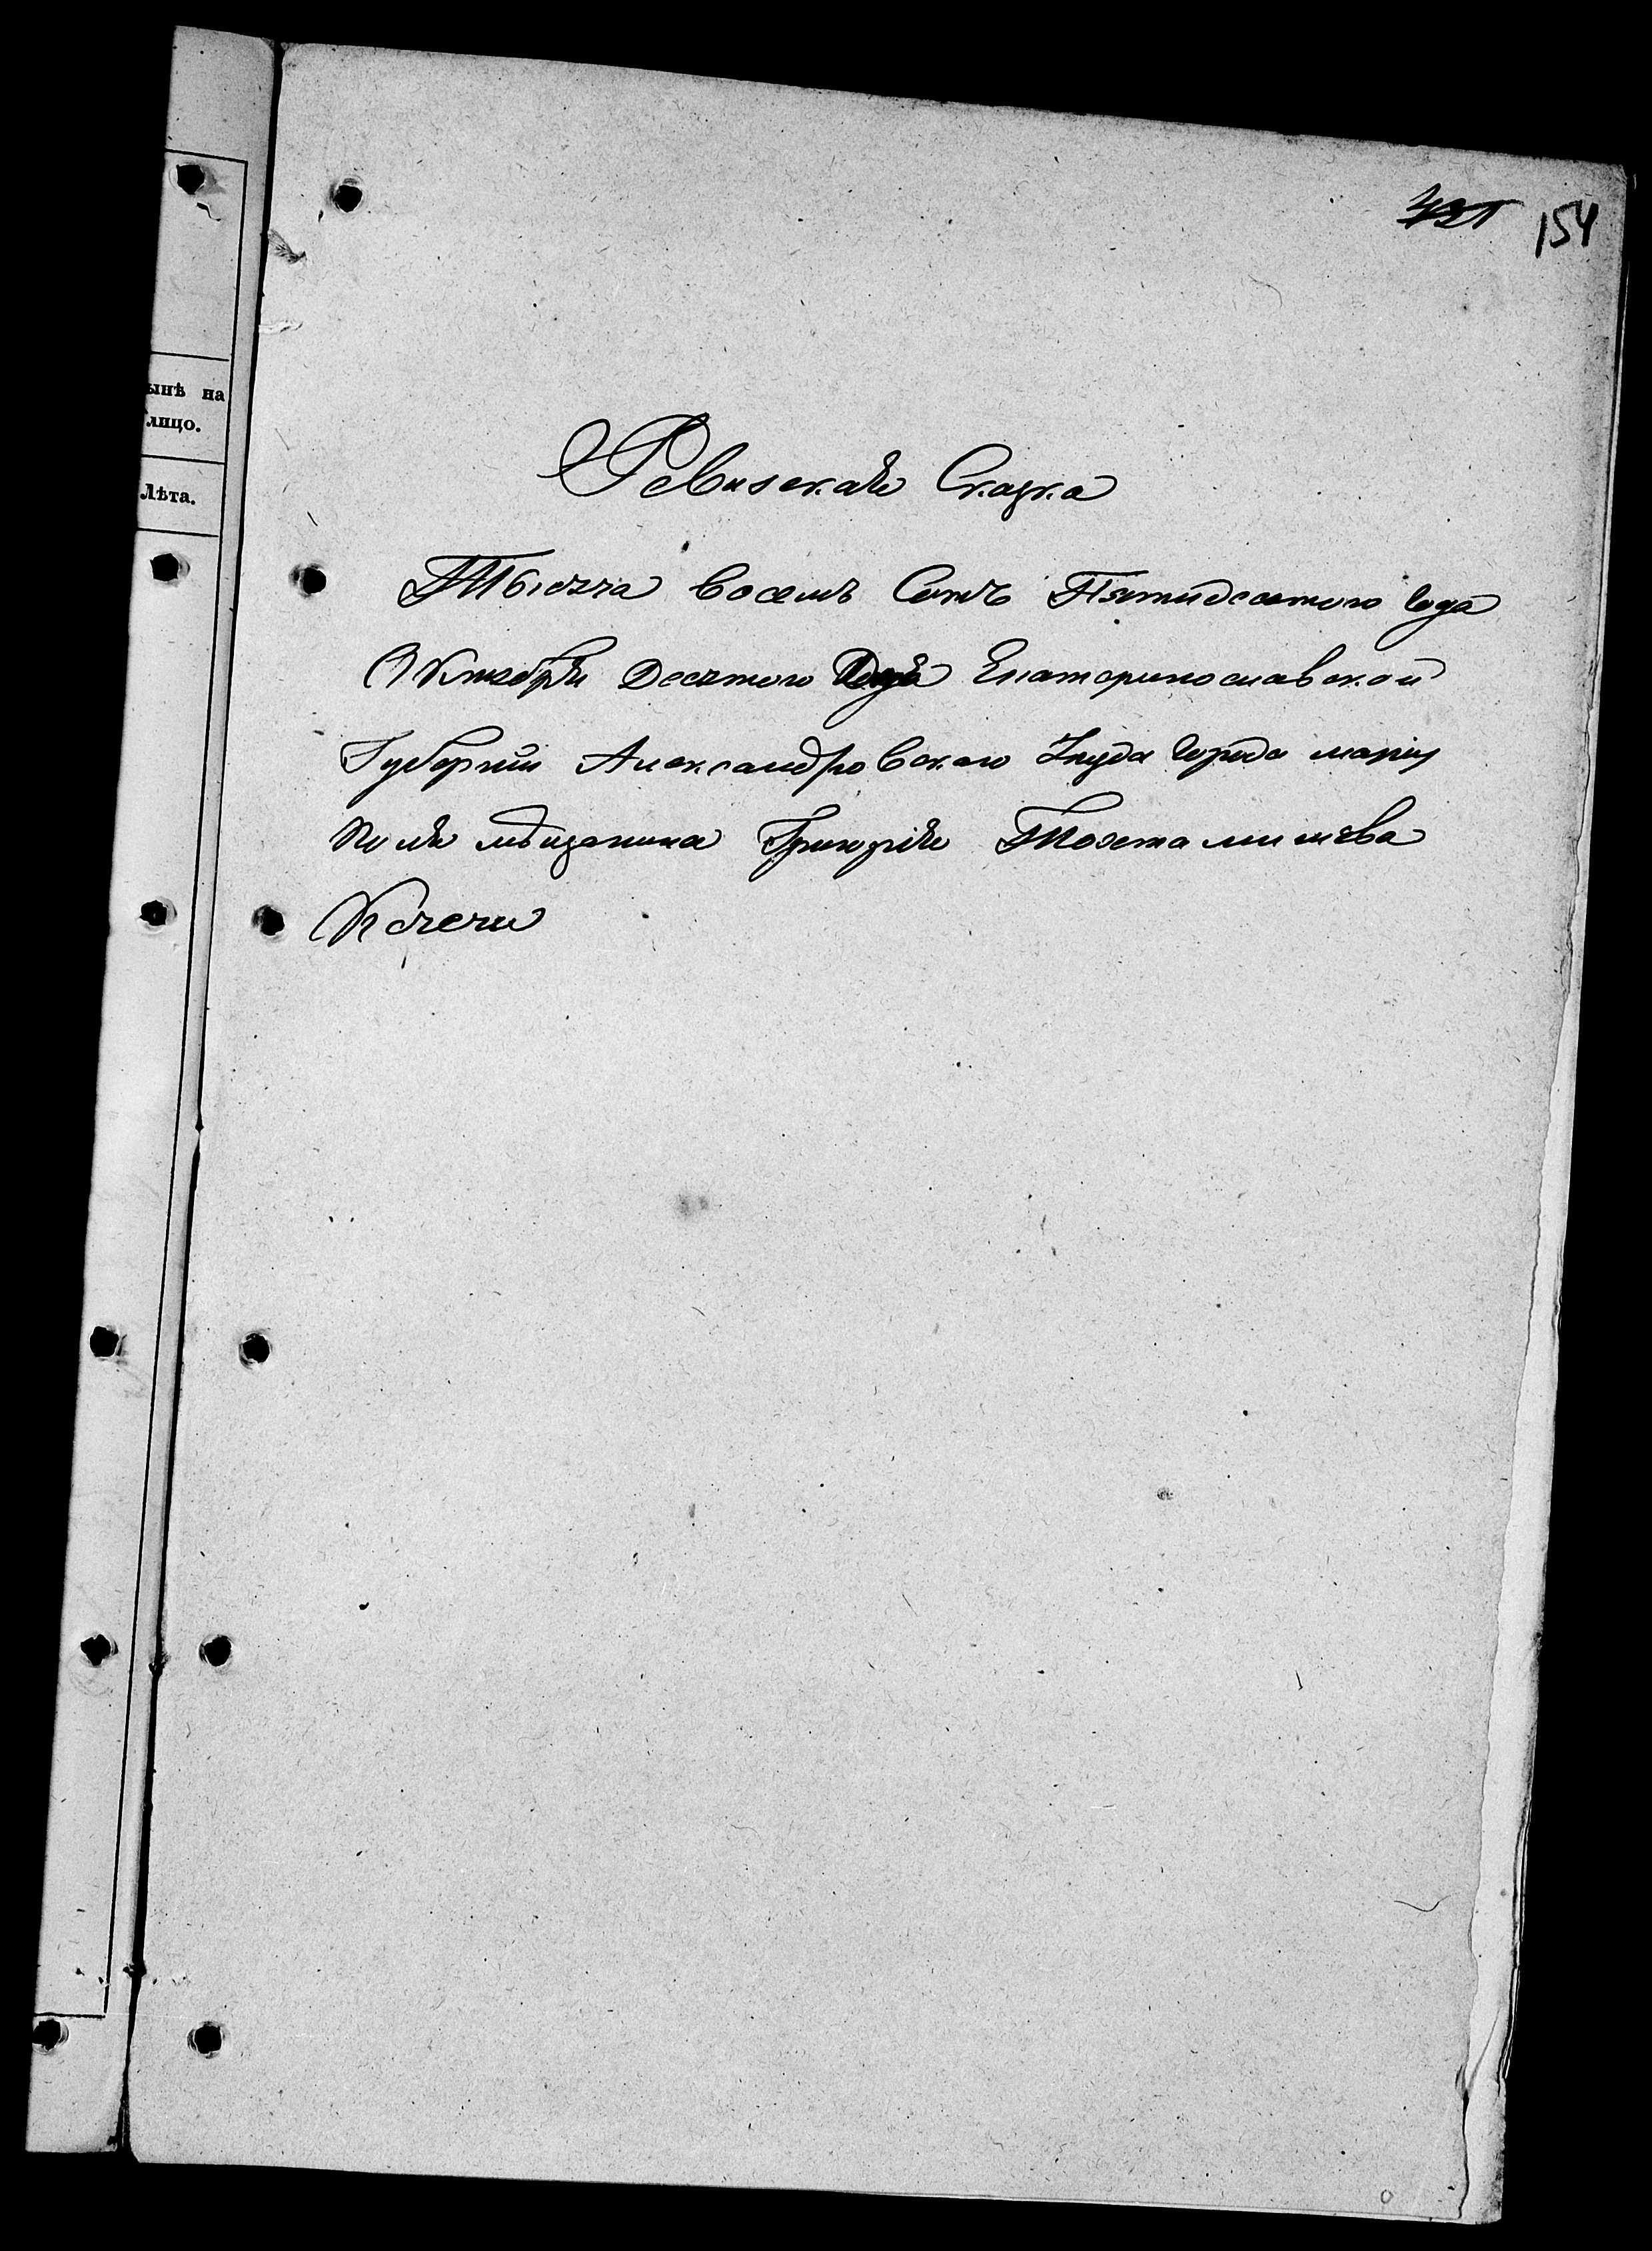 154
ынѣ на
лицо.
Лѣта.
Ревизская Сказка
Тысяча восемь Сотъ Пятидесятого года
Октября Десятого Дня Екатеринославской
Губерніи Александровского уезда города мариу
поля мѣщанина Григорія